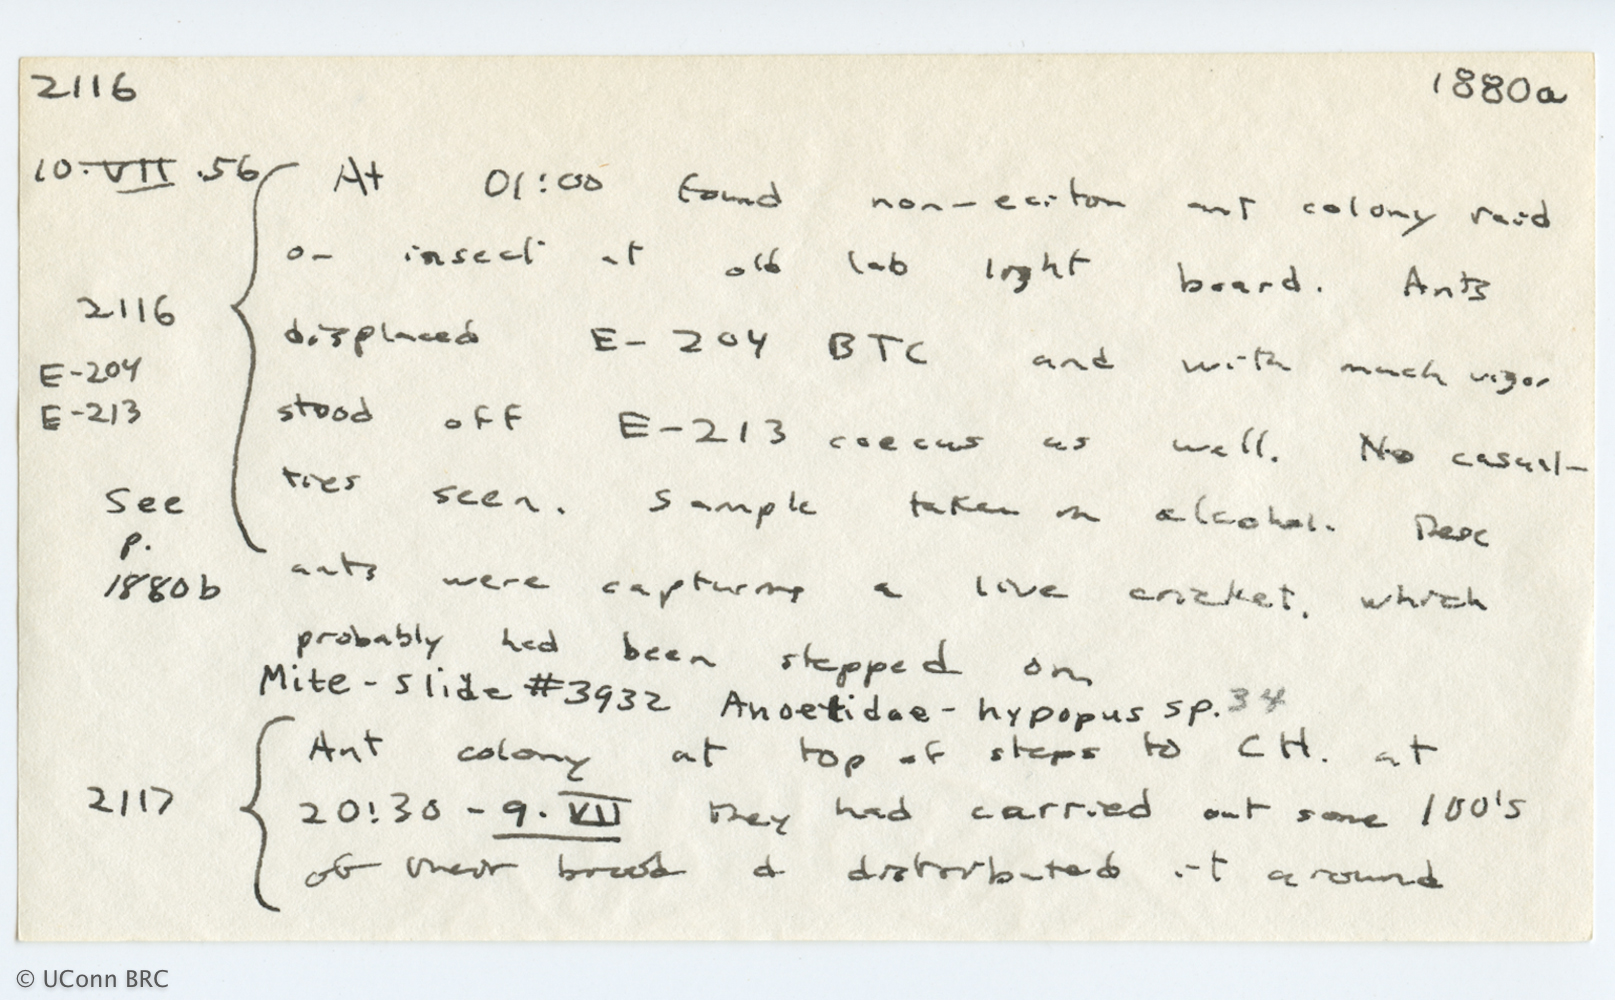 2116
1880a
10.VII.56
At 01:00 found non-eciton ant colony raid
on insect at old lab light board. Ants
2116
displaced E-204 BTC and with much vigor
E-204
stood off E-213 coecus as well. No casual-
E-213
ties seen. Sample taken in alcohol. These
See
p.
1880b
ants were capturing a live cricket, which
probably had been stepped on
Mite-slide #3932 Anoetidae-hypopus sp. 34
2117
Ant colony at top of steps to CH. at
20:30 - 9.VII They had carried out some 100's
of their brood & distributed it around
© UConn BRC